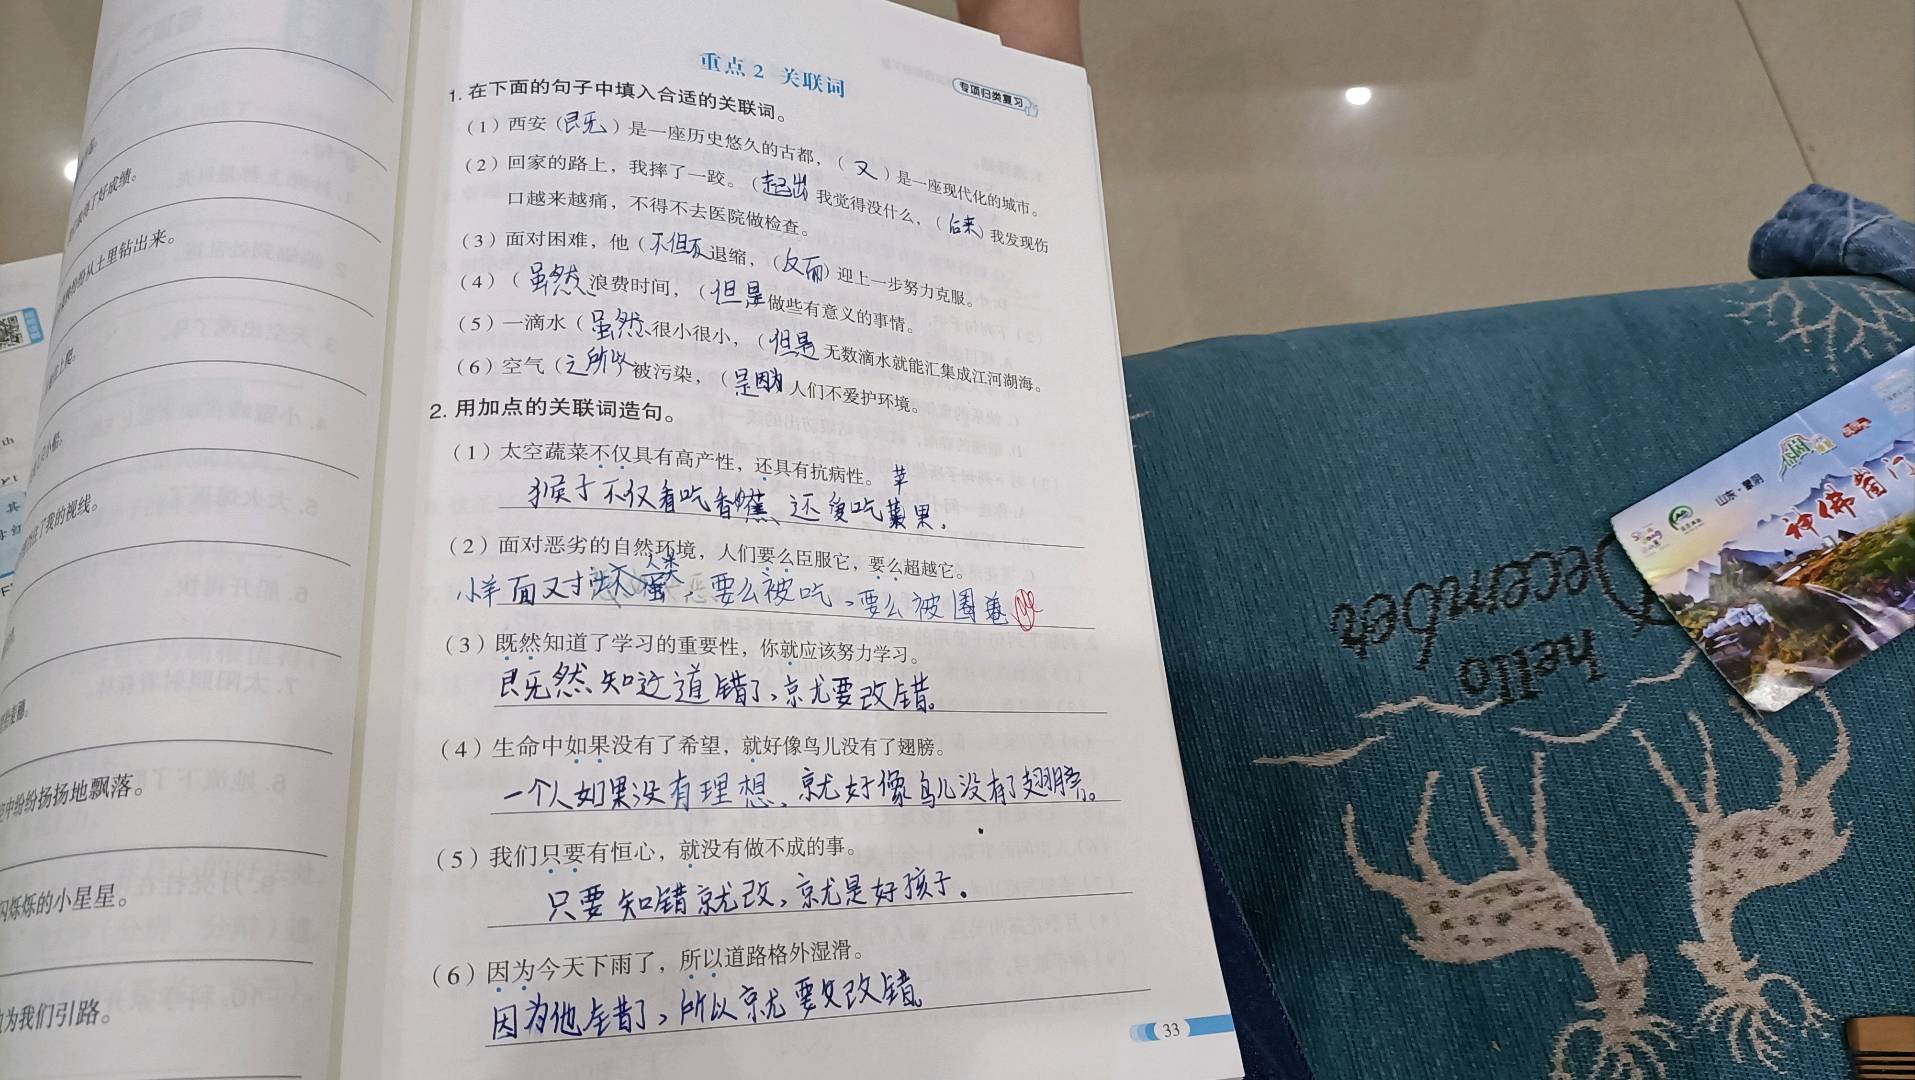 重点2 关联词
专项归类复习
1. 在下面的句子中填入合适的关联词。
(1)西安(既)是一座历史悠久的古都,(又)是一座现代化的城市。
(2)回家的路上,我摔了一跤。(起出)我觉得没什么,(后来)我发现伤
口越来越痛,不得不去医院做检查。
(3)面对困难,他(不但不)退缩,(反而)迎上一步努力克服。
(4)(虽然)浪费时间,(但是)做些有意义的事情。
(5)一滴水(虽然)很小很小,(但是)无数滴水就能汇集成江河湖海。
(6)空气(之所以)被污染,(是因为)人们不爱护环境。
2. 用加点的关联词造句。
(1)太空蔬菜不仅具有高产性,还具有抗病性。
苹
猴子不仅看吃香蕉、还爱吃果.
(2)面对恶劣的自然环境,人们要么臣服它,要么超越它。
人类
小羊面对,要么被吃、要么被圈养
(3)既然知道了学习的重要性,你就应该努力学习。
既然知道错了,就要改错。
(4)生命中如果没有了希望,就好像鸟儿没有了翅膀。
一个人如果没有理想、就好像鸟儿没有了翅膀。
(5)我们只要有恒心,就没有做不成的事。
只要知错就改,就是好孩子.
(6)因为今天下雨了,所以道路格外湿滑。
因为他错了,所以就要改错
33
了好成绩。
从土里钻出来。
了我的视线。
空中纷纷扬扬地飘落。
闪烁烁的小星星。
为我们引路。
hello
December
山东·蒙阴
神佛